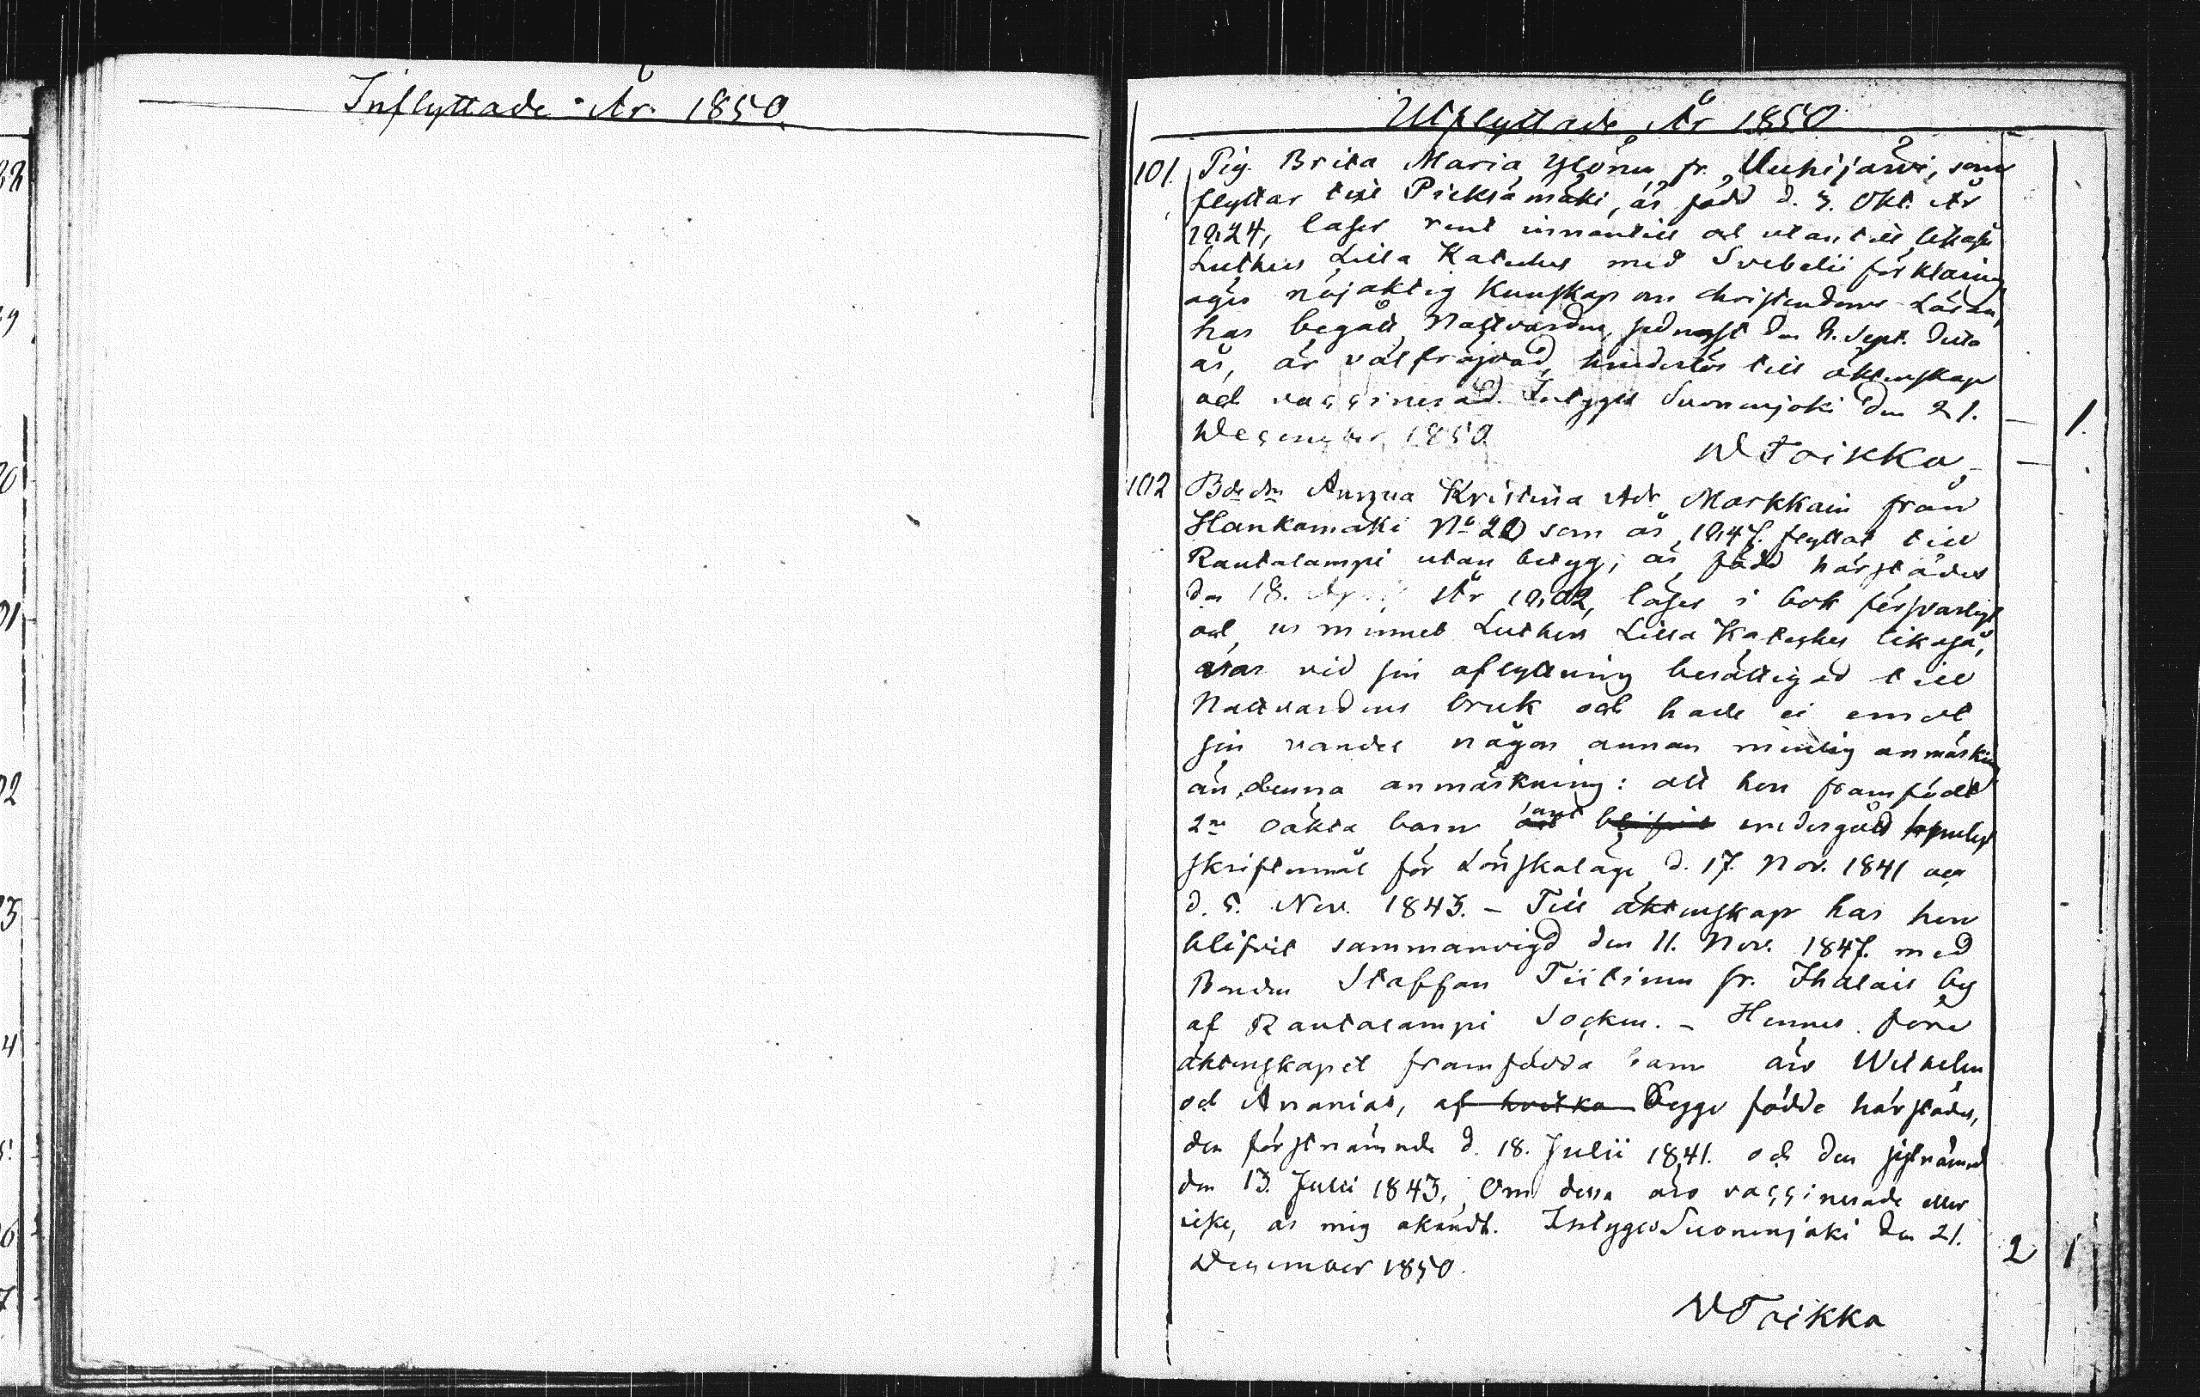 Inflyttade År 1850.
Utflyttade År 1850
101. Pig. Brita Maria Ylönen fr. Vuhijärvi, som
flyttar till Pieksämäki, är född d. 3. Okt. År
1824, läser rent innantill och utantill likaså
Luthers Lilla Kateches med Svebelii förklaring,
äger nöjaktig kunskap om christendoms Läran,
har begått Nattvarden sednast den 8. Sept. detta
år, är välfrejdad, hinderlös till äktenskap
och vaccinerad. Intygas Suonenjoki den 21. — 1.
December 1850
W Toikka —
102 Bdedr Anna Kristina Adr Markkain från
Hankamäki No 20 som år 1847 flyttat till
Rautalampi utan betyg, är född härstädes
den 18. År 1802, läser i bok försvarligt
och ur minnet Luthers Lilla Kateches likaså,
var vid sin aflyttning berättigad till
Nattvardens bruk och hade ei emot
sin vandel någon annan menlig anmärkning
än denna anmärkning: att hon framfödt
2ne oäkta barn samt undergått
skriftermål för Lönskaläge d. 17. Nov. 1841 och
d. 5. Nov. 1843. – Till äktenskap har hon
blifvit sammanvigd den 11. Nov. 1847. med
Bonden Staffan Tiitinen fr. Ihalais by
af Rautalampi Socken. – Hennes före
äktenskapet framfödda barn äro Wilhelm
och Ananias, af hvilka Begge födde härstädes,
den förstnämnde d. 18. Julii 1841. och den sistnämnde
den 13. Julii 1843. Om dessa äro vaccinerade eller
icke, är mig okändt. Intygas Suonenjoki den 21.
December 1850. 2 1
W Toikka